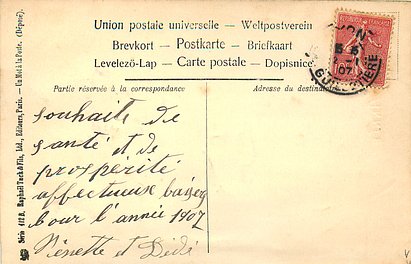 Union postale universelle – Weltpostverein
Brevkort – Postkarte – Briefkaart
Levelező-Lap – Carte postale – Dopisnice
Partie réservée à la correspondance
Adresse du destinataire
souhaits de
santé et de
prospérité
affectueux baisers
pour l'année 1907
Nénette et Dédé
LYON
07
GUILLOTIÈRE
Série 412 B. Raphael Tuck & Fils, Ltd., Editeurs, Paris. — Un Mot à la Poste. (Déposé).